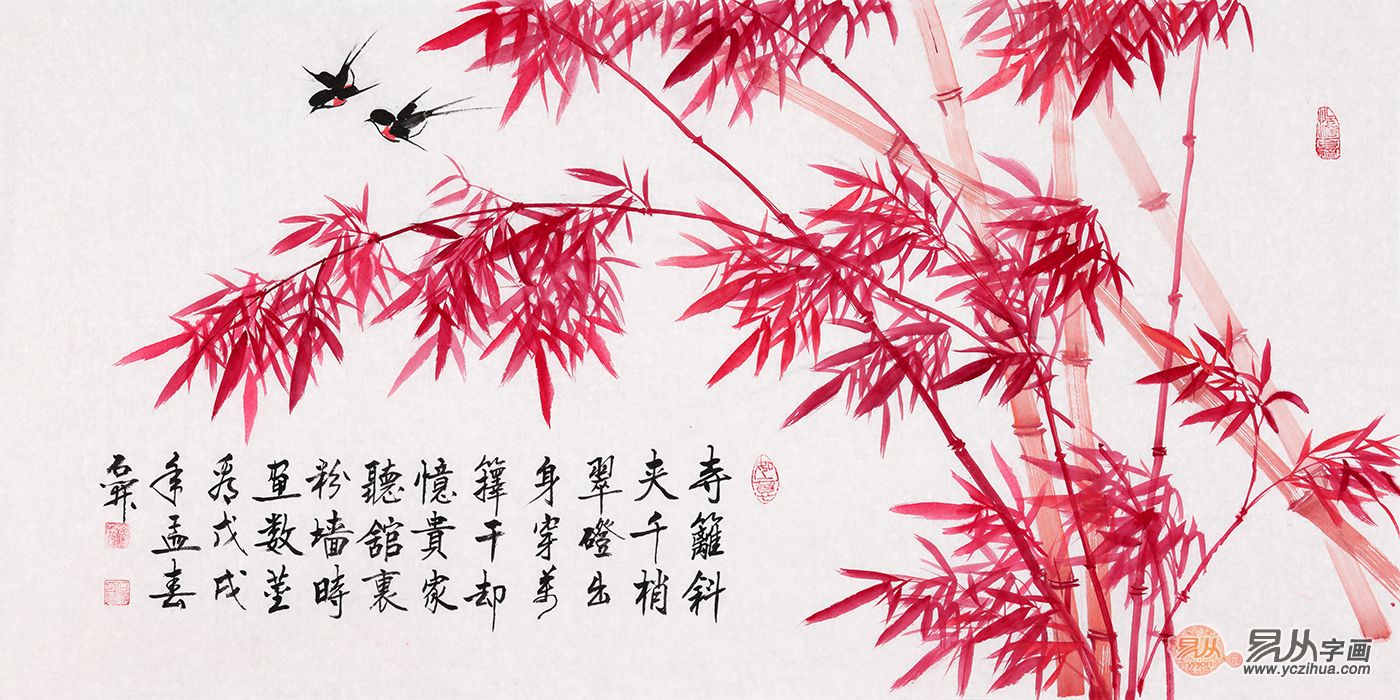 寺籬斜
夹千梢
翠磴出
身穿萬
籜干却
憶貴家
聽舘裏
粉墙時
画數莖
看戊戌
年孟春
如意
易从
易从字画
www.yczihua.com